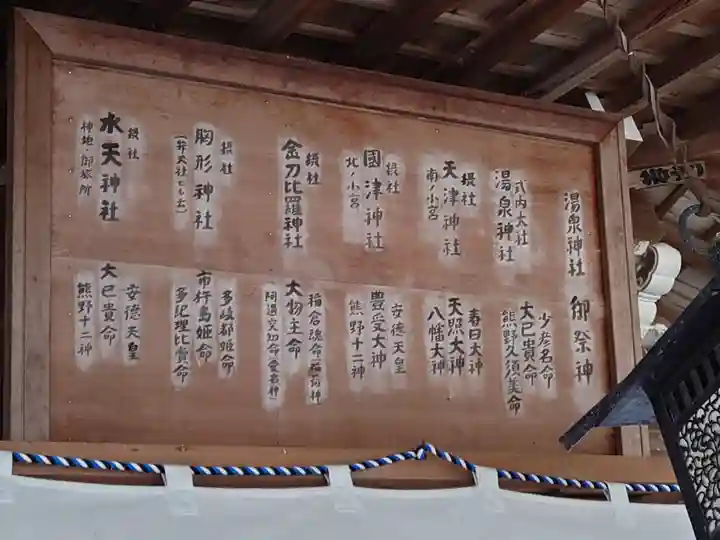 湯泉神社 御祭神
式内大社
湯泉神社
少彦名命
大己貴命
熊野久須美命
摂社
天津神社
南ノ小宮
春日大神
天照大神
八幡大神
摂社
國津神社
北ノ小宮
安徳天皇
豊受大神
熊野十二神
摂社
金刀比羅神社
稲倉魂命(稲荷神)
大物主命
阿遇突知命(愛宕神)
摂社
胸形神社
(弁天社とも云)
多岐都姫命
市杵島姫命
多記理比賣命
摂社
水天神社
神地・御旅所
安德天皇
大己貴命
熊野十二神